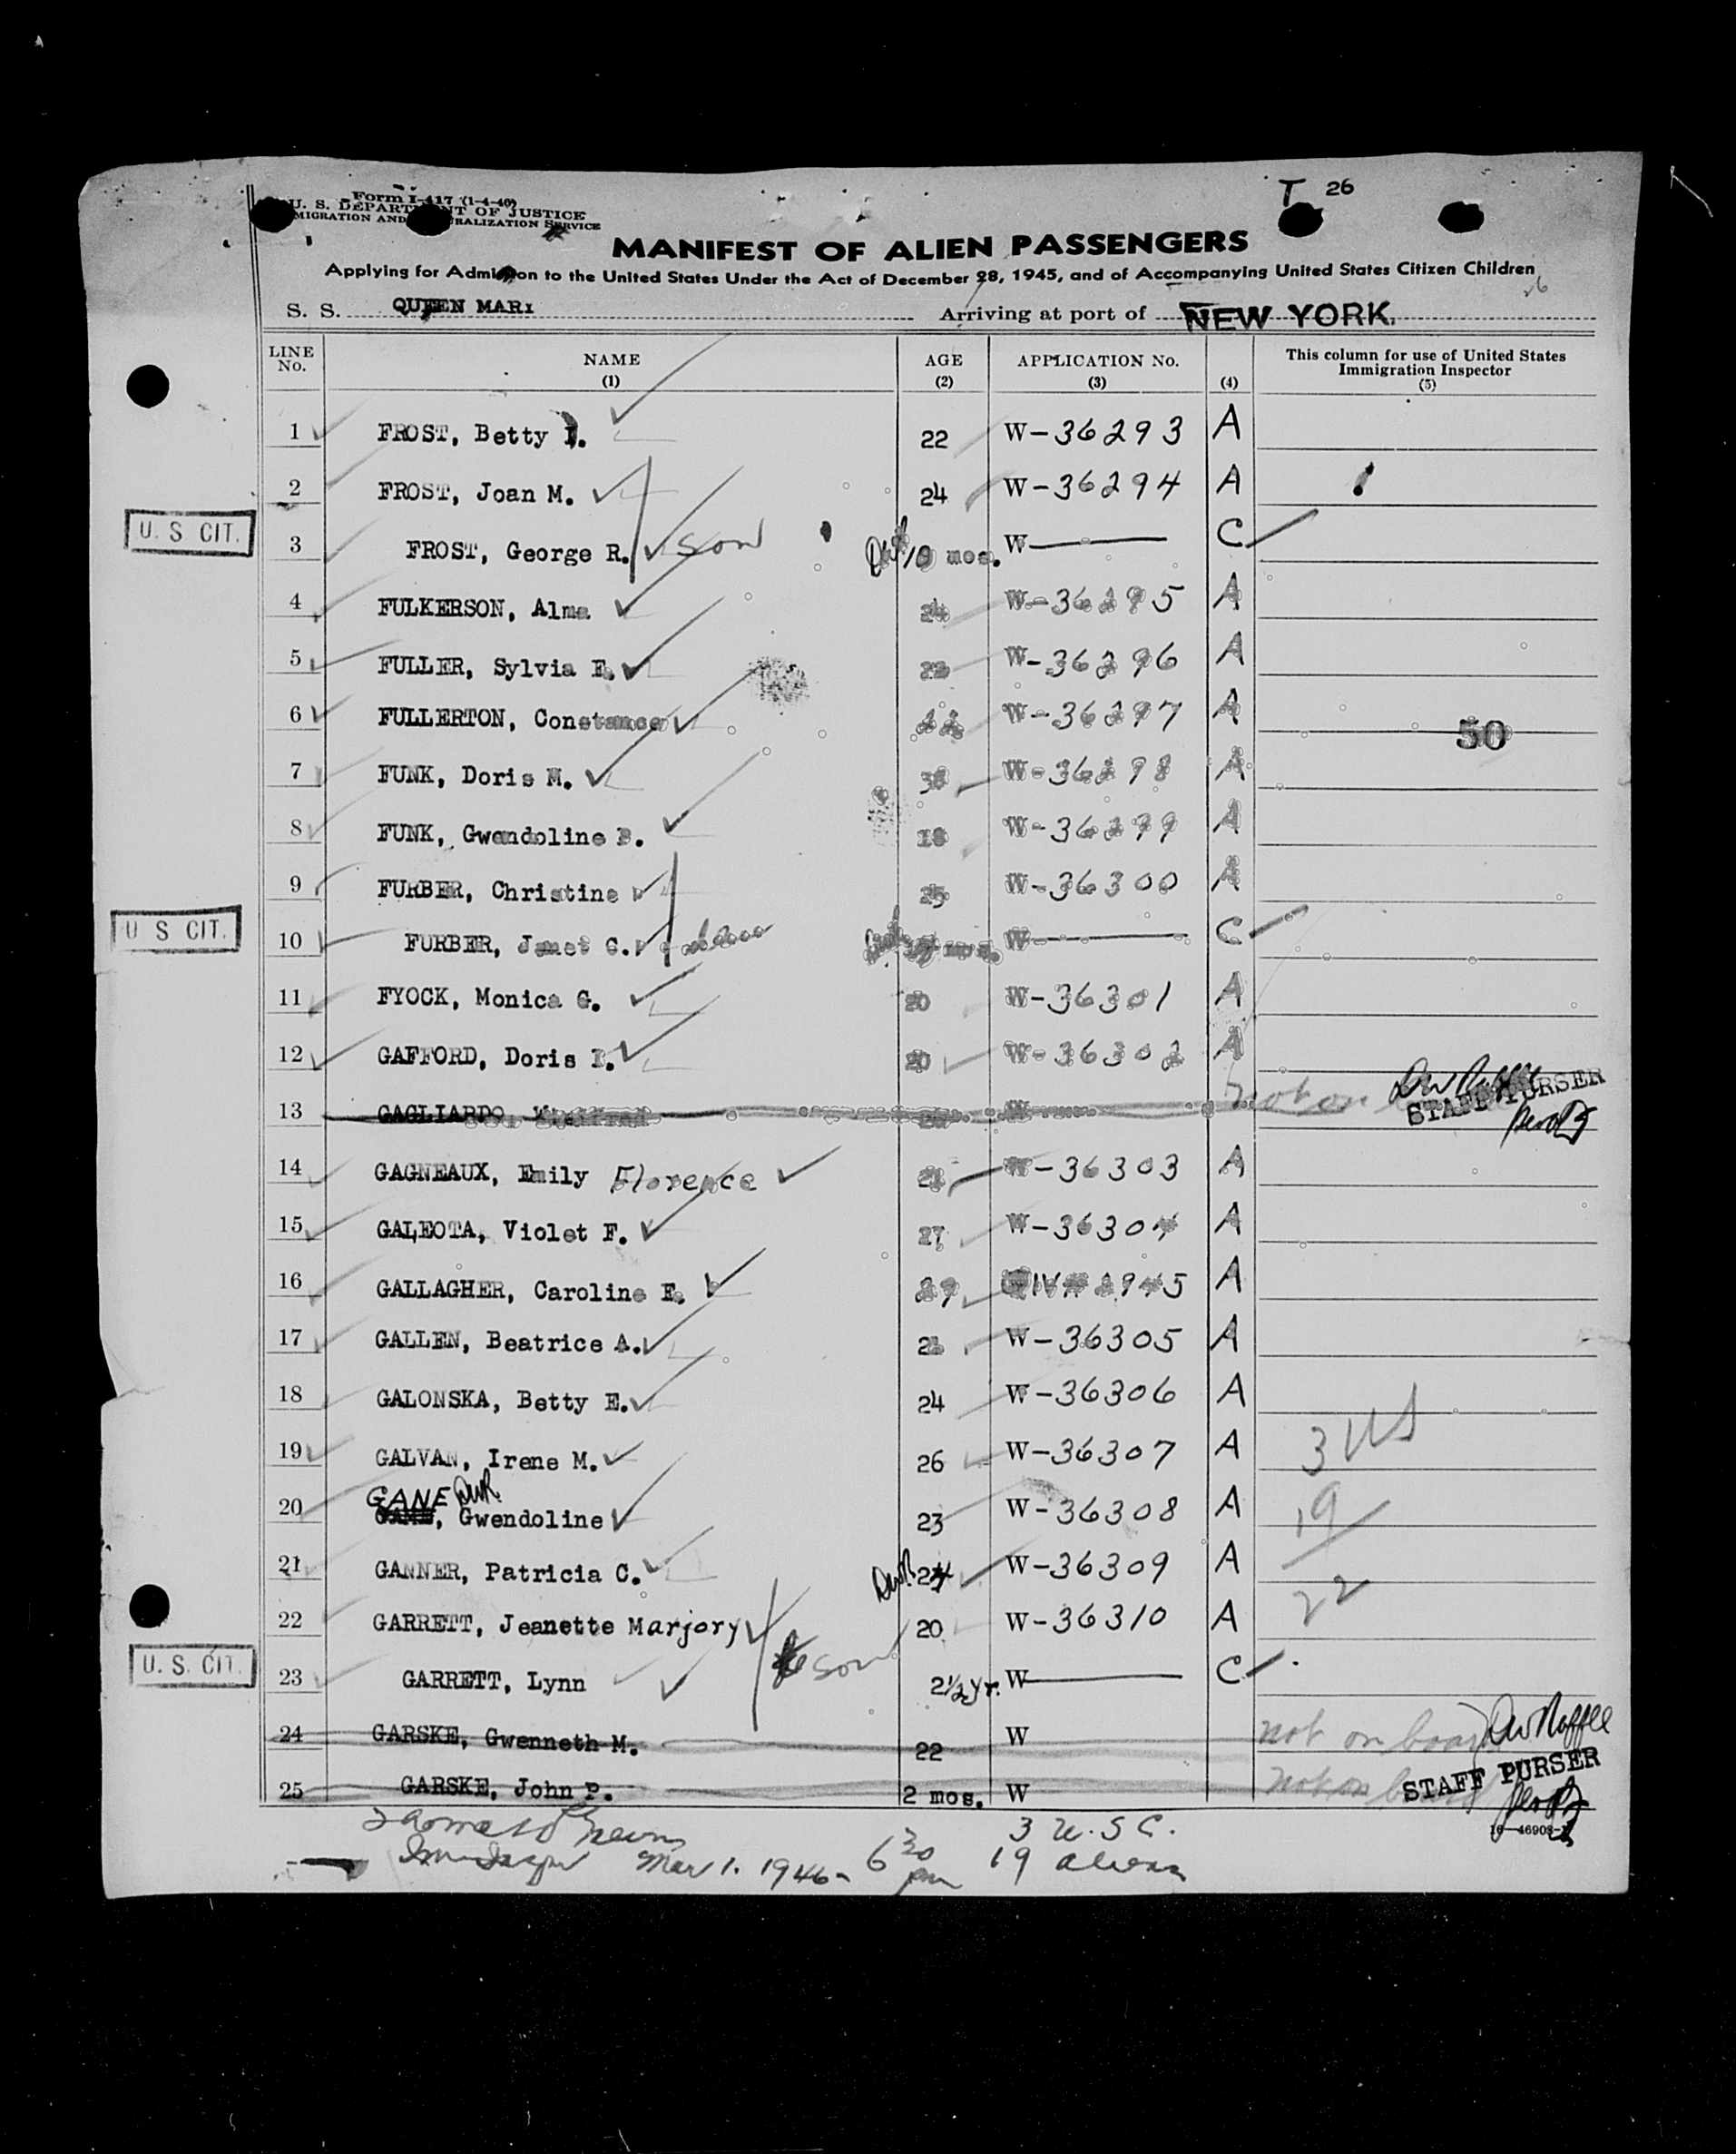 T 26
Form I-417 (1-4-46)
U. S. DEPARTMENT OF JUSTICE
IMMIGRATION AND NATURALIZATION SERVICE
MANIFEST OF ALIEN PASSENGERS
Applying for Admission to the United States Under the Act of December 28, 1945, and of Accompanying United States Citizen Children
26
S. S. QUEEN MARY Arriving at port of NEW YORK.
LINE No. NAME (1) AGE (2) APPLICATION No. (3) (4) This column for use of United States Immigration Inspector (5)
1 FROST, Betty 22 W-36293 A
2 FROST, Joan M. 24 W-36294 A
U. S CIT. 3 FROST, George R. son 10 mos. W C
4 FULKERSON, Alma 24 W-36295 A
5 FULLER, Sylvia E. W-36296 A
6 FULLERTON, Constance W-36297 A
50
7 FUNK, Doris M. W-36298 A
8 FUNK, Gwendoline B. 18 W-36299 A
9 FURBER, Christine 25 W-36300 A
U S CIT. 10 FURBER, Janet C. W C
11 FYOCK, Monica G. 20 W-36301 A
12 GAFFORD, Doris I. 20 W-36302 A
13 GAGLIARDO, W not on
STAFF PURSER
14 GAGNEAUX, Emily Florence 21 W-36303 A
15 GALEOTA, Violet F. 27 W-36304 A
16 GALLAGHER, Caroline E. A
17 GALLEN, Beatrice A. W-36305 A
18 GALONSKA, Betty E. 24 W-36306 A
19 GALVAN, Irene M. 26 W-36307 A
3 US
20 GANE, Gwendoline 23 W-36308 A
19
21 GANNER, Patricia C. 24 W-36309 A
22
22 GARRETT, Jeanette Marjory 20 W-36310 A
U. S. CIT. 23 GARRETT, Lynn son 2½ yr. W C
24 GARSKE, Gwenneth M. 22 W not on board
25 GARSKE, John P. 2 mos. W not on board
STAFF PURSER
16-46903-1
Mar 1. 1946 6 30 pm
3 U.S C.
19 aliens